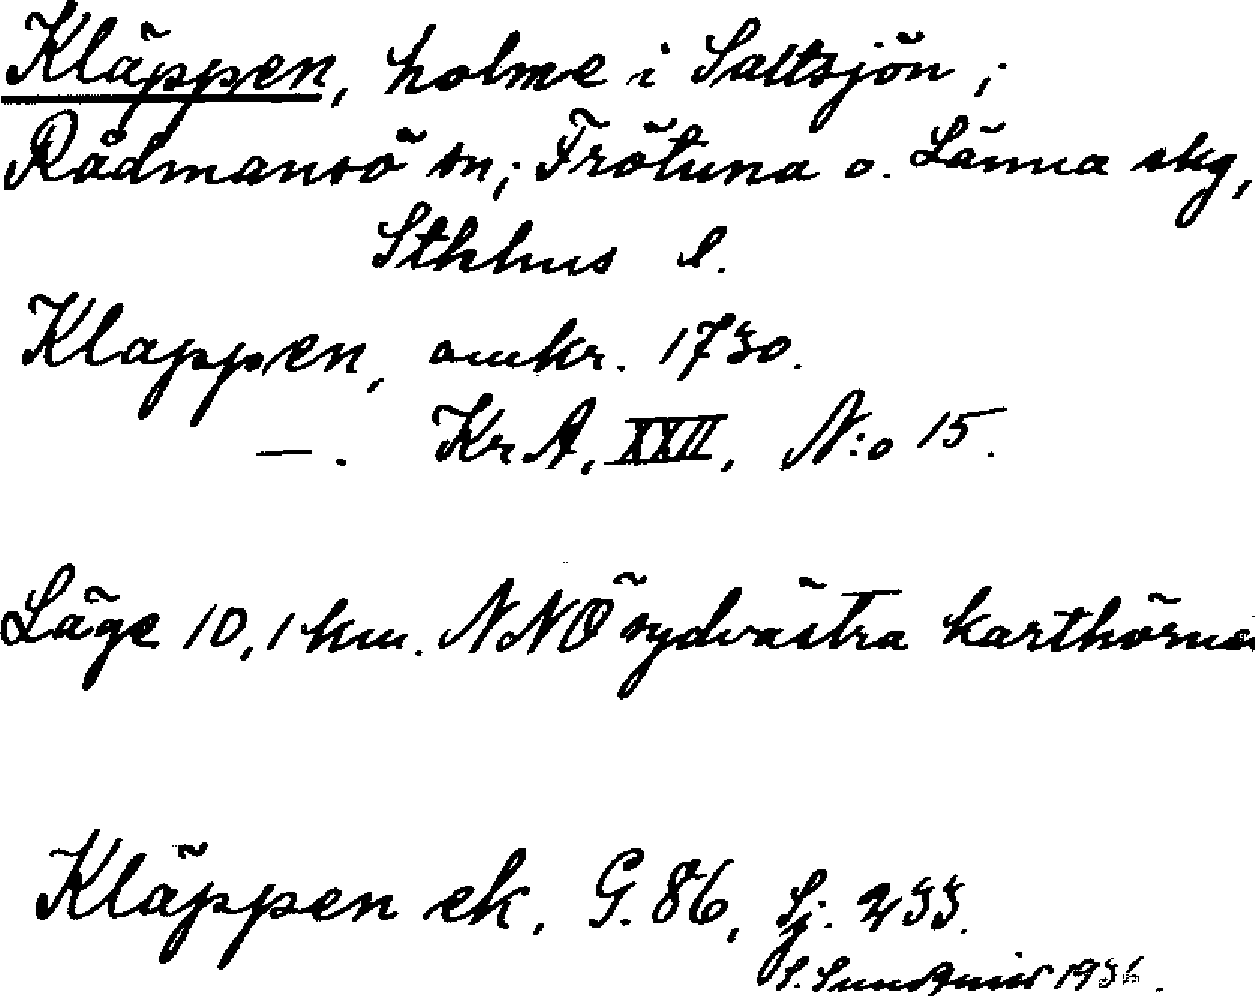 Kläppen, holme i Saltsjön;
Rådmansö sn; Frötuna o. Länna skg,
Sthlms l.
Klappen, omkr. 1730.
—. KrA, XXII, N:o 15.
Läge 10,1 km. NNÖ sydvästra karthörnet
Kläppen ek. G. 86, Sj. 233.
S. 1936.